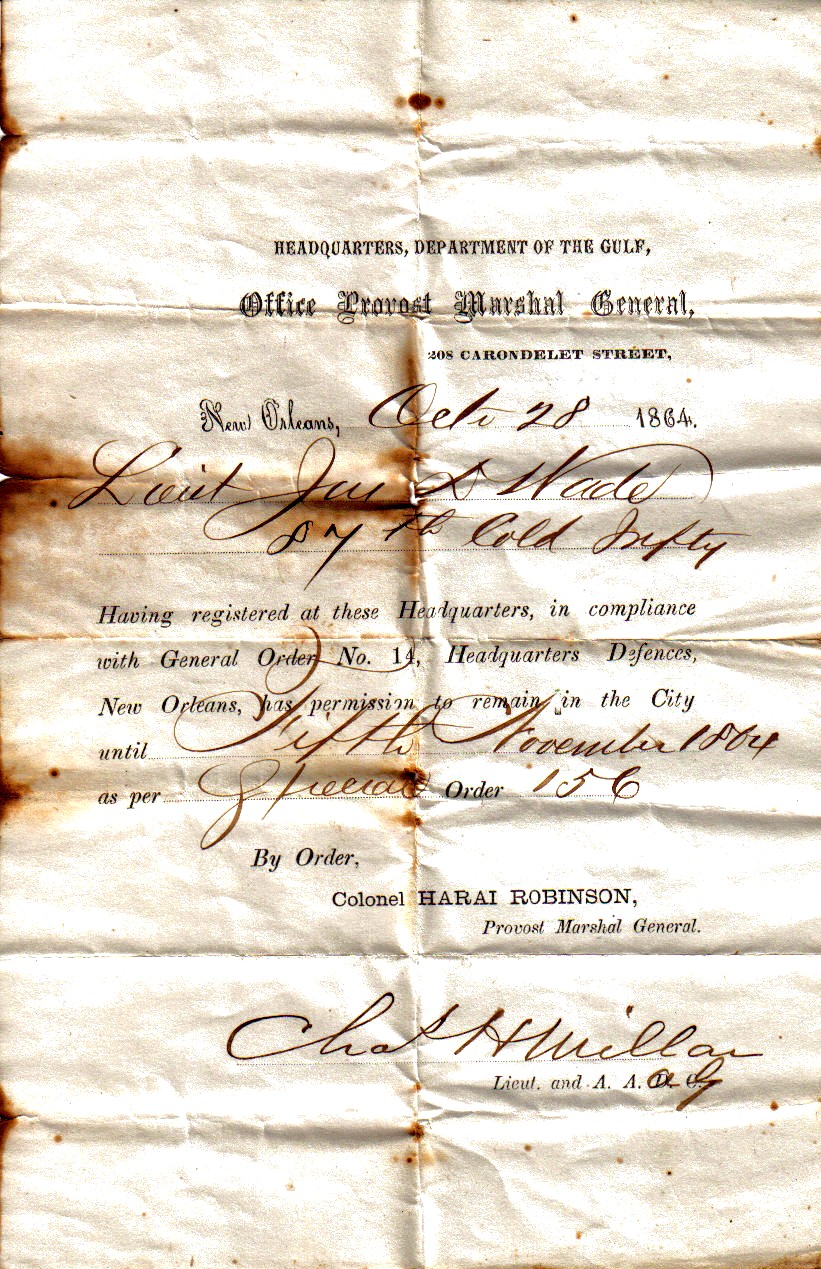 HEADQUARTERS, DEPARTMENT OF THE GULF,
Office Provost Marshal General,
208 CARONDELET STREET,
New Orleans, Oct 28 1864.
Lieut Jas D Wade
87th Cold Infty
Having registered at these Headquarters, in compliance
with General Order No. 14, Headquarters Defences,
New Orleans, has permission to remain in the City
until Fifth November 1864
as per Special Order 156
By Order,
Colonel HARAI ROBINSON,
Provost Marshal General.
Chas H Millar
Lieut. and A. A. a G